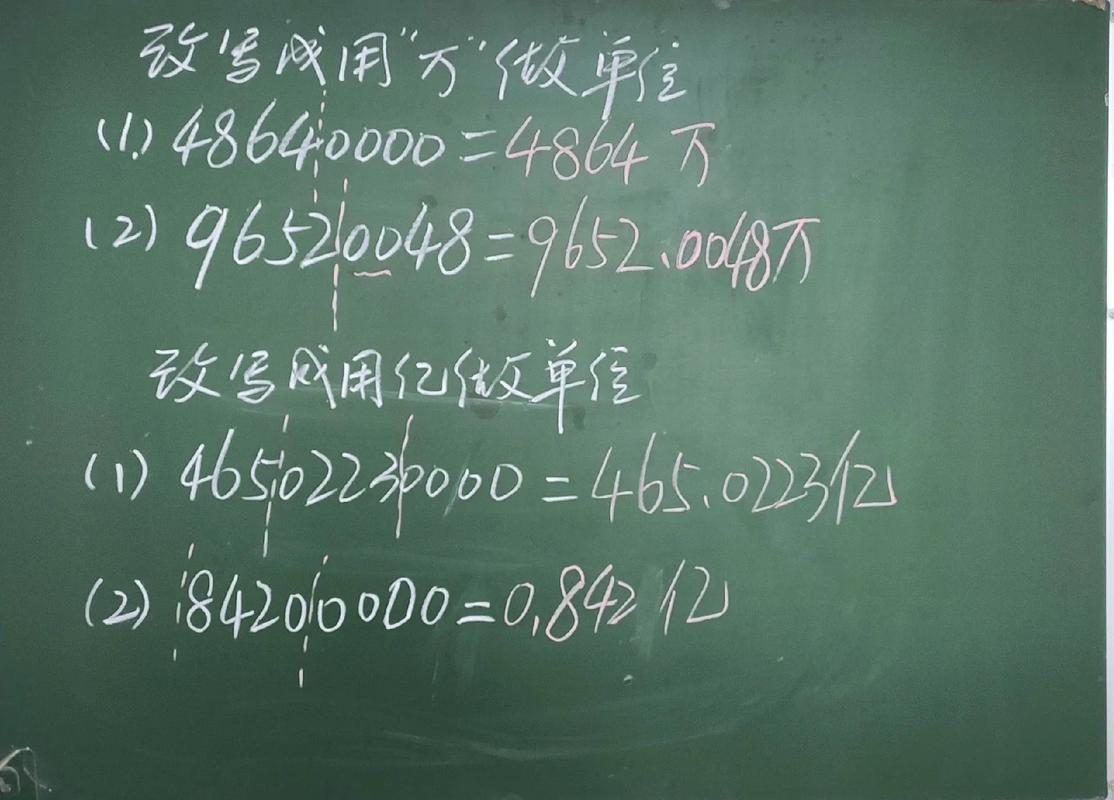 改写成用“万”做单位
(1.) 48640000=4864万
(2) 96520048=9652.0048万
改写成用亿做单位
(1) 46502230000=465.0223亿
(2) 84200000=0.842亿